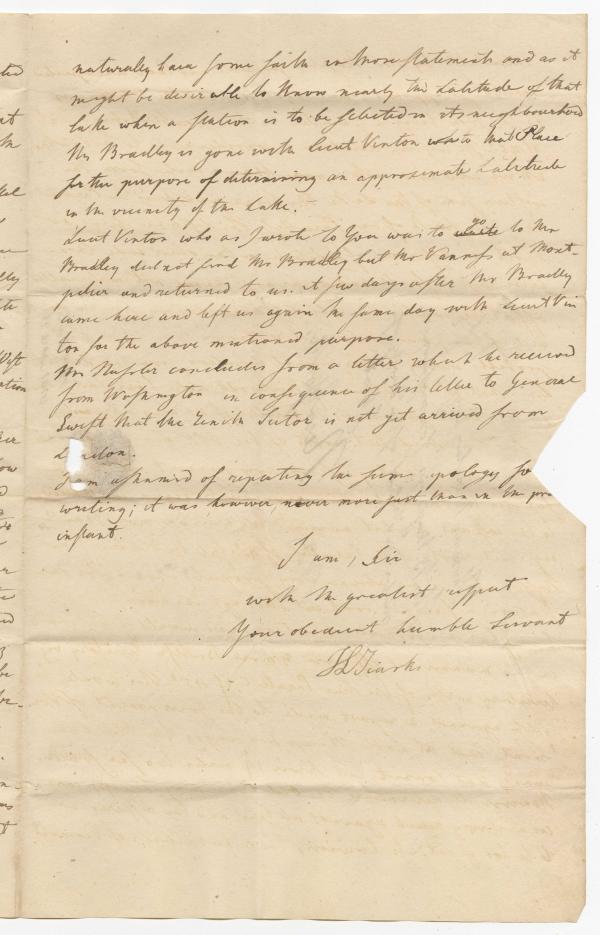 naturally have some faith in those statements and as it
might be desirable to know nearly the Latitude of that
lake when a station is to be selected in its neighbourhood
Mr Bradley is gone with Lieut Vinton to that Place
for the purpose of determining an approximate Latitude
in the vicinity of the Lake.
Lieut Vinton who as I wrote to You was to go to Mr
Bradley did not find Mr Bradley but Mr Vanness at Mont-
pelier and returned to us. A few days after Mr Bradley
came here and left us again the same day with Lieut Vin
ton for the above mentioned purpose.
Mr Hassler concludes from a letter which he received
from Washington in consequence of his letter to General
Swift that the Zenith Sector is not yet arrived from
London.
I am ashamed of repeating the same apology for
writing; it was however, never more just than in the pre
instant.
I am, Sir
with the greatest respect
Your obedient humble Servant
JLTiarks